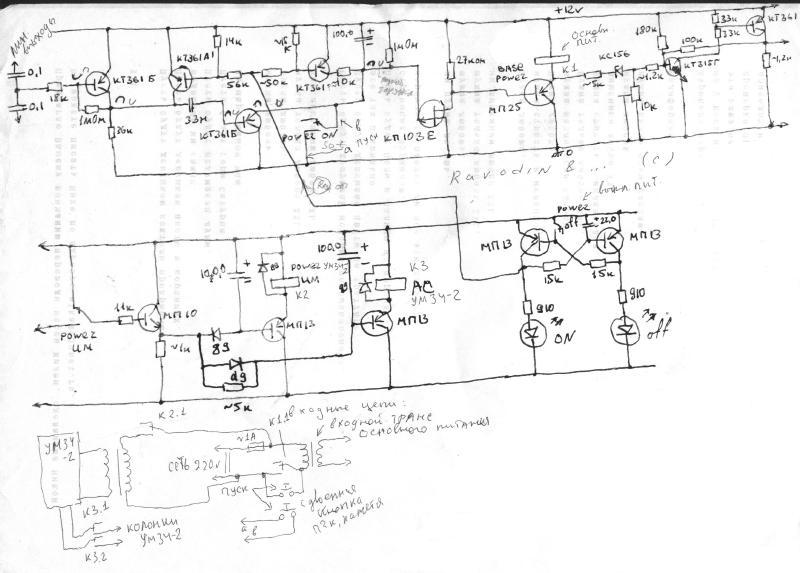 +12v
ЛИН выходы
0,1
0,1
18к
КТ361Б
1мОм
36к
КТ361А1
14к
33н
56к
КТ361Б
~50к
КТ361
100,0
~10к
POWER ON
а
в
пуск
1мОм
КП103Е
27ком
BASE
POWER
МП25
основн.
пит.
К1
~5к
КС156
~1,2к
10к
180к
КТ315Г
100к
33к
33к
КТ361
~1,2к
Ravodin & ... (c)
выкл. пит.
POWER
off
+22,0
МП13
МП13
15к
15к
910
910
ON
off
11к
МП10
POWER
ЦМ
~1к
10,0,0
д9
д9
~5к
POWER УМЗЧ-2
ЦМ
К2
МП13
100,0
К3
АС
УМЗЧ-2
МП13
К2.1
К1.1
входные цепи:
входной транс
основного питания
~1А
УМЗЧ
-2
сеть 220v
пуск
сдвоенная
кнопка
П2К, кажется
а в
К3.1
К3.2
колонки
УМЗЧ-2